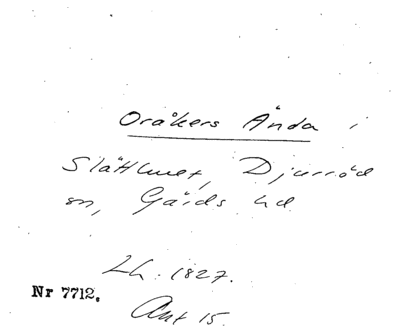 Oråkers Ända i
Slätthuset, Djurröd
sn, Gärds hd
Lh. 1827.
Nr 7712.
Akt 15.